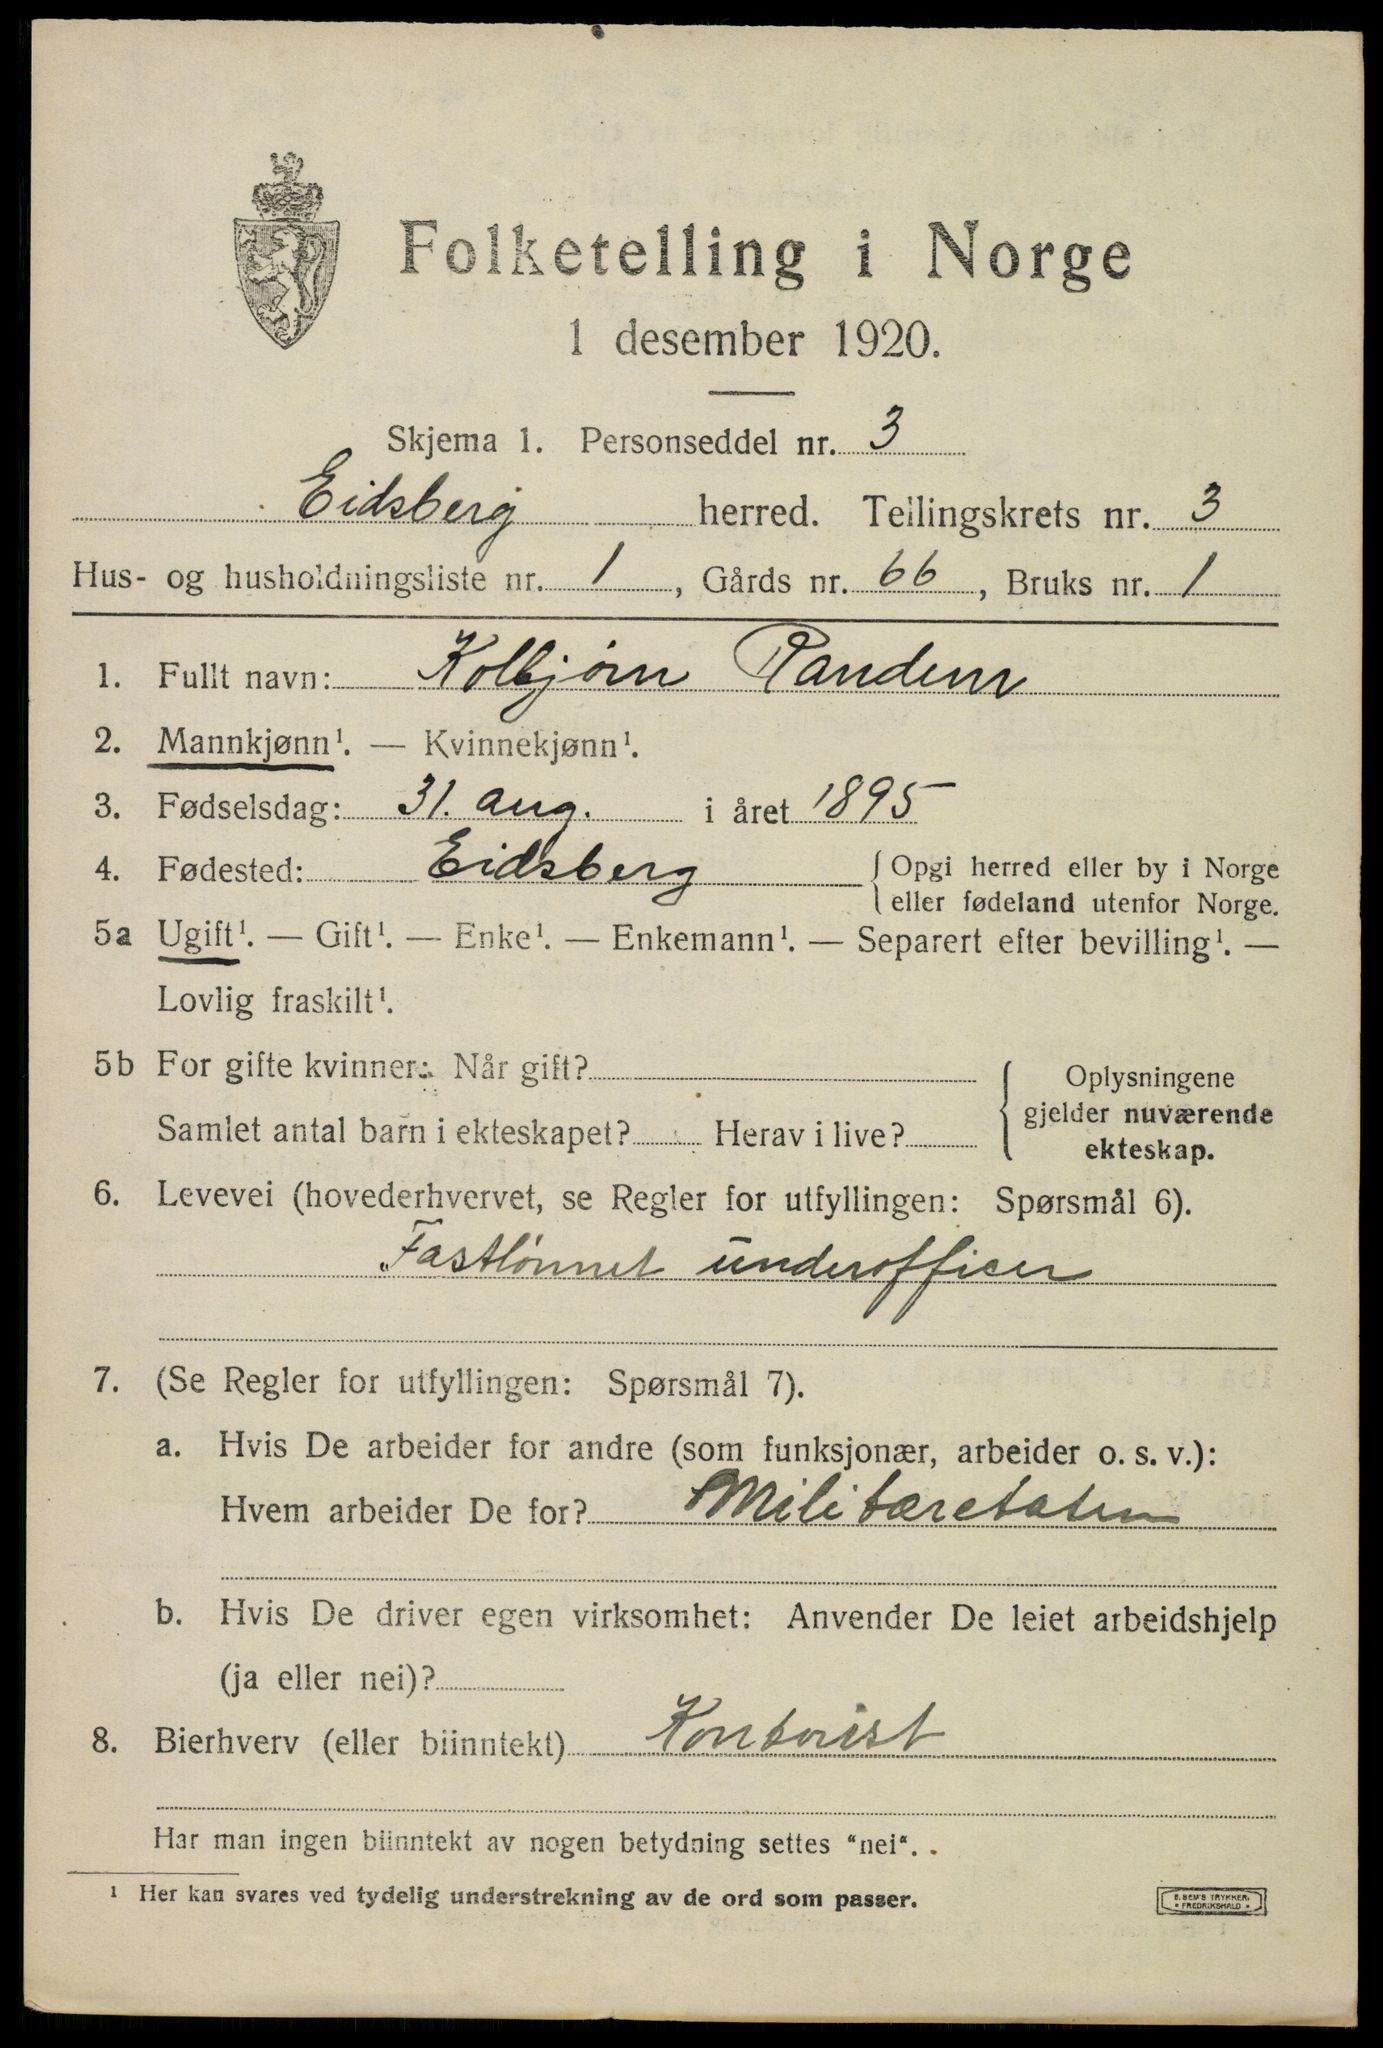 Folketelling i Norge
1 desember 1920.
Skjema 1. Personseddel nr. 3
Eidsberg herred. Tellingskrets nr. 3
Hus- og husholdningsliste nr. 1, Gårds nr. 66, Bruks nr. 1
1. Fullt navn: Kolbjørn Randem
2. Mannkjønn¹. — Kvinnekjønn¹.
3. Fødselsdag: 31. aug. i året 1895
4. Fødested: Eidsberg { Opgi herred eller by i Norge
eller fødeland utenfor Norge.
5a Ugift¹. — Gift¹. — Enke¹. — Enkemann¹. — Separert efter bevilling¹. —
Lovlig fraskilt¹.
5b For gifte kvinner: Når gift?
Samlet antal barn i ekteskapet? Herav i live?
{ Oplysningene
gjelder nuværende
ekteskap.
6. Levevei (hovederhvervet, se Regler for utfyllingen: Spørsmål 6).
Fastlønnet underofficer
7. (Se Regler for utfyllingen: Spørsmål 7).
a. Hvis De arbeider for andre (som funksjonær, arbeider o. s. v.):
Hvem arbeider De for? Militæretaten
b. Hvis De driver egen virksomhet: Anvender De leiet arbeidshjelp
(ja eller nei)?
8. Bierhverv (eller biinntekt) Kontorist
Har man ingen biinntekt av nogen betydning settes "nei".
¹ Her kan svares ved tydelig understrekning av de ord som passer.
E. SEM'S TRYKKERI,
* FREDRIKSHALD *